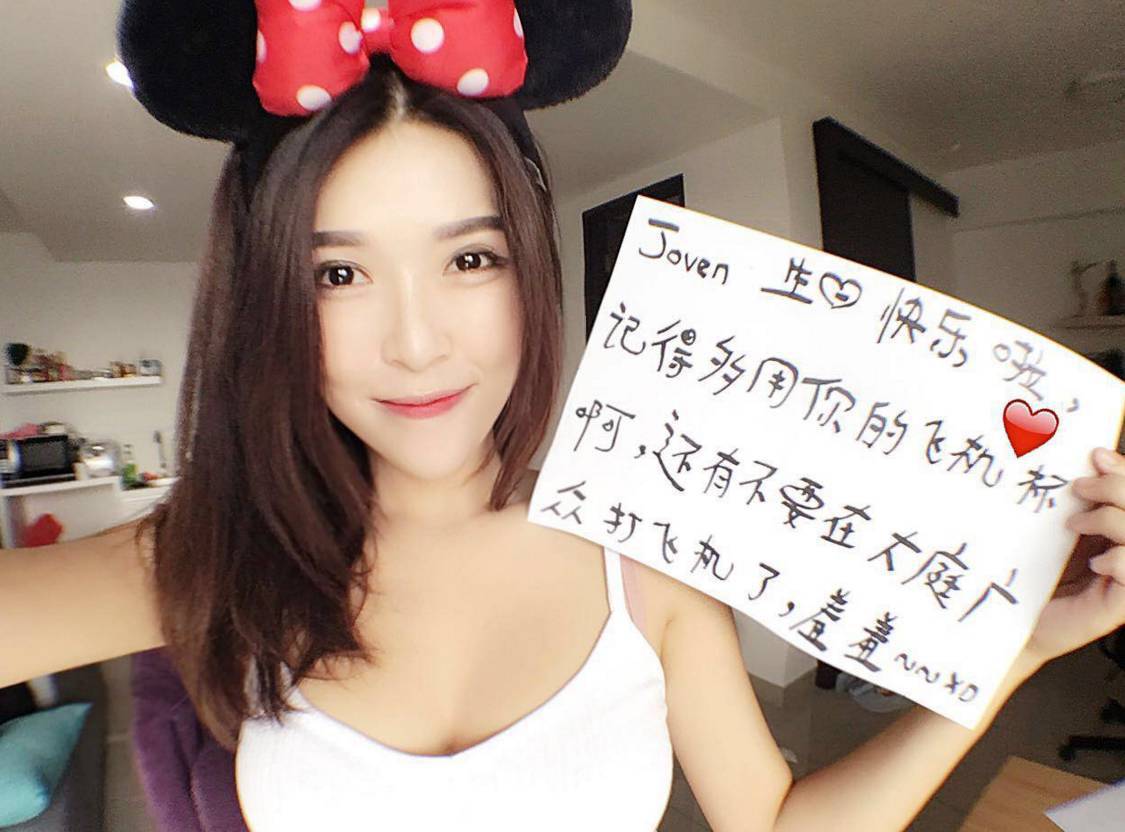 Joven 生♡快乐啦,
记得多用你的飞机杯
啊,还有不要在大庭广
众打飞机了,羞羞~~xo